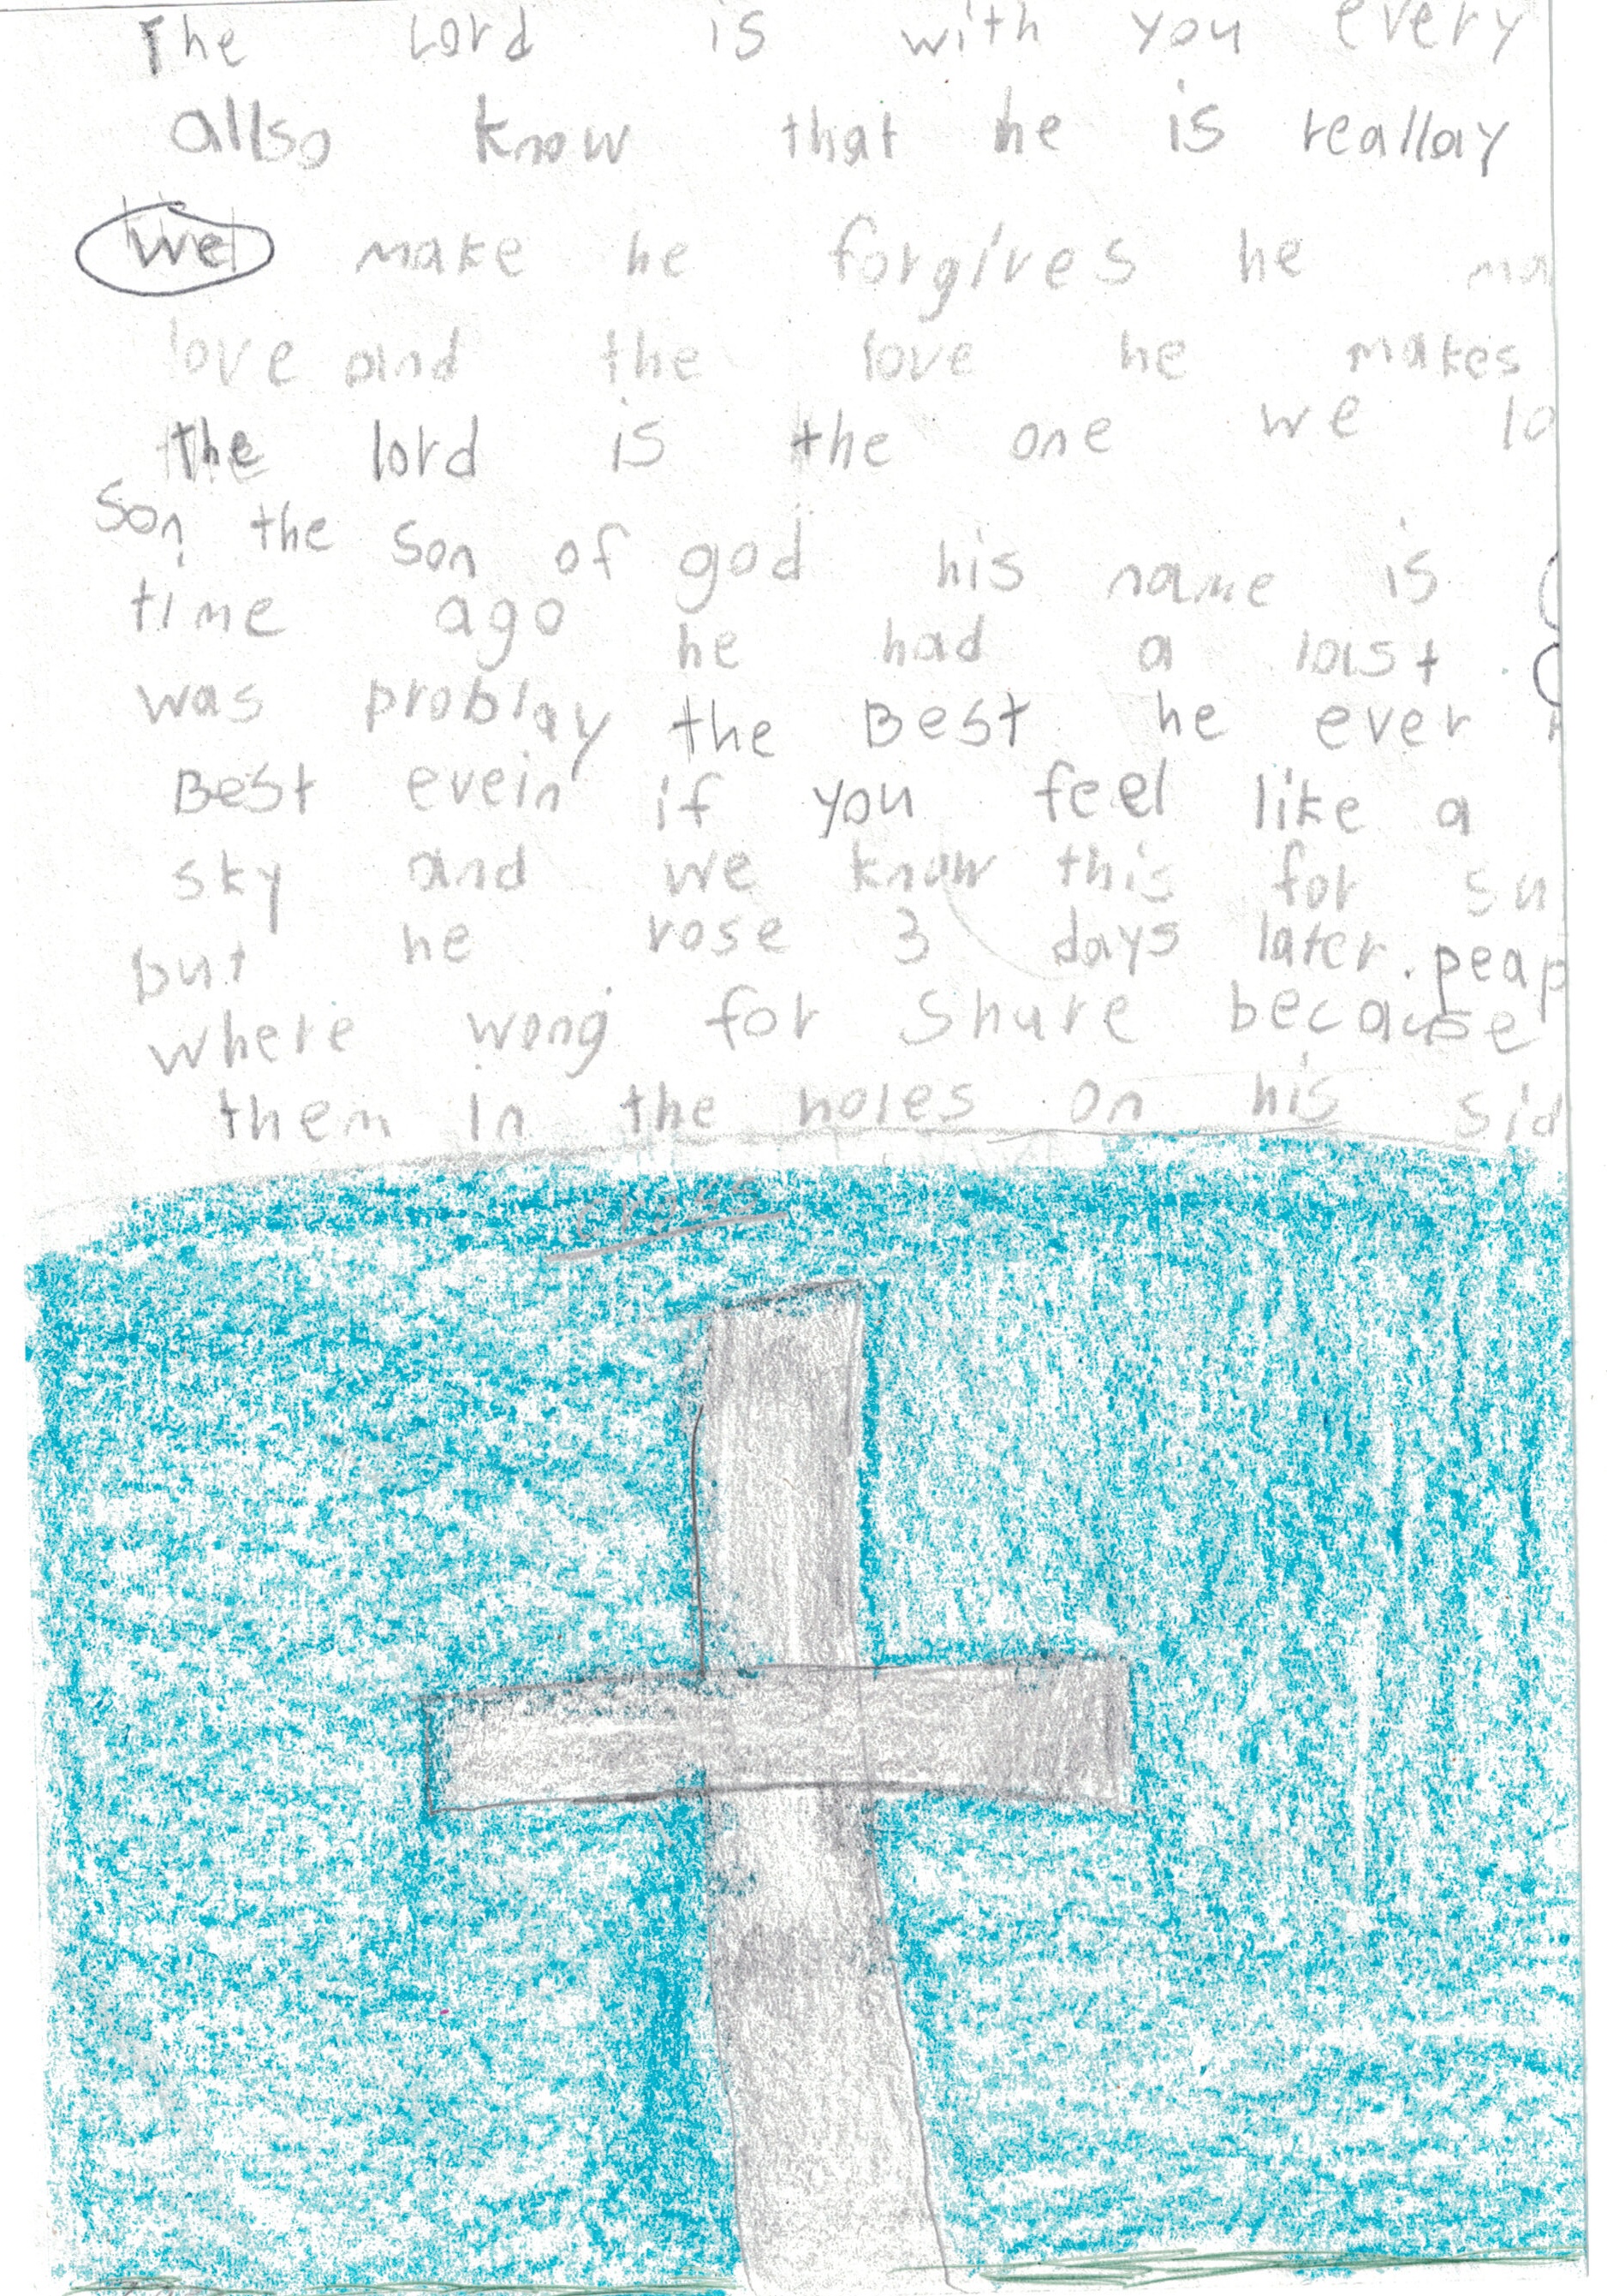 The Lord is with you every
allso know that he is reallay
we make he forgives he ma
love and the love he makes
the lord is the one we lo
Son the son of god his name is
time ago he had a last
was problay the Best he ever
Best evein if you feel like a
sky and we know this for su
but he rose 3 days later. peap
where wong for shure because
them in the holes on his sid
cross